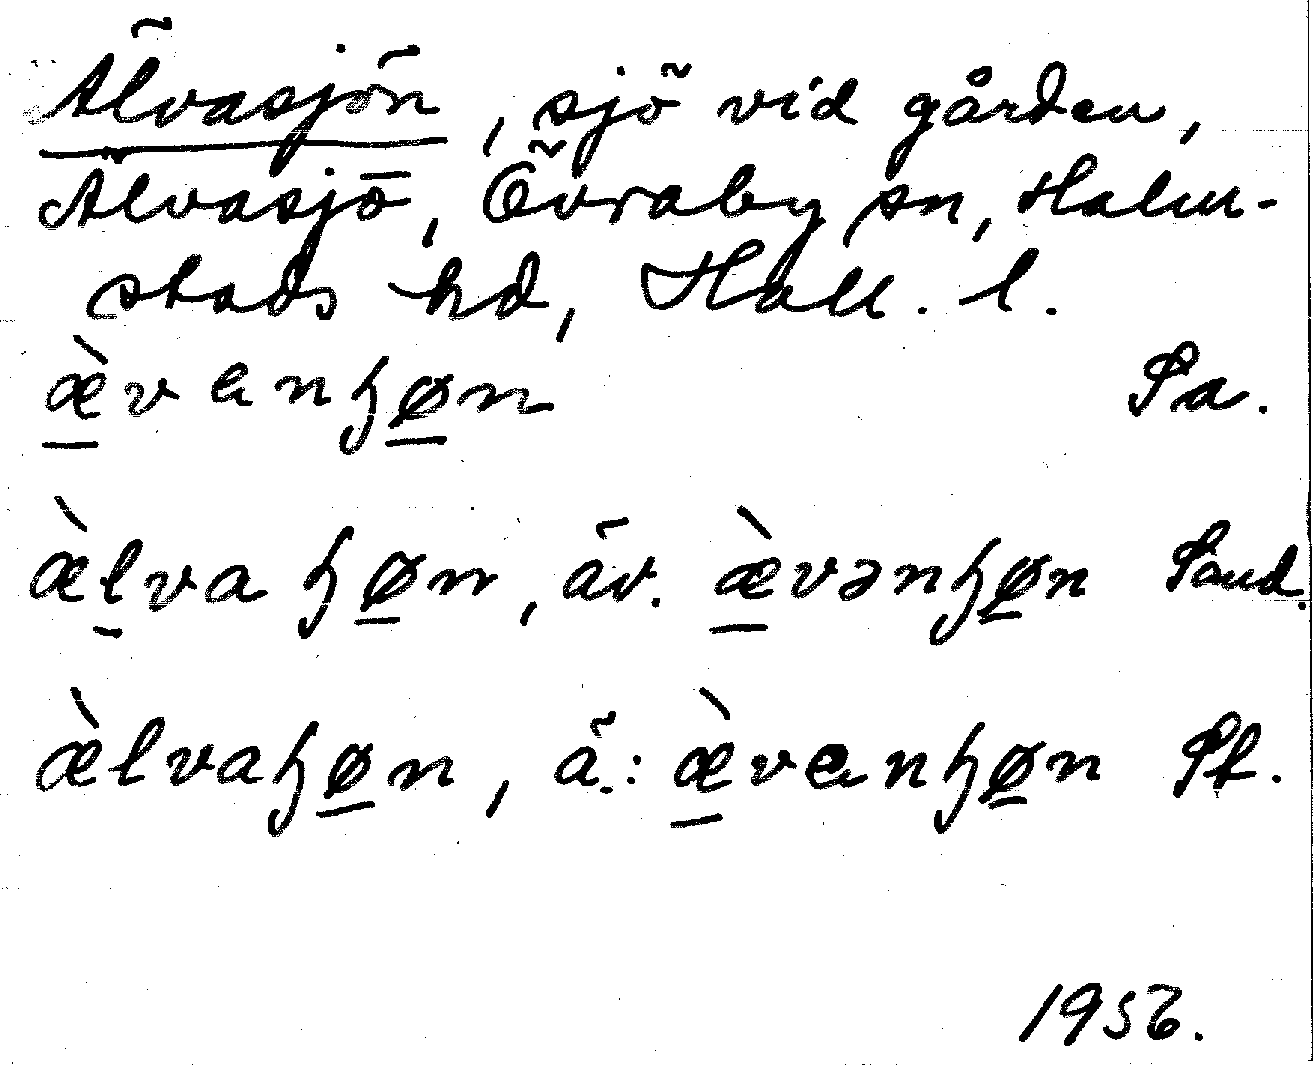 Älvasjön, sjö vid gården,
Älvasjö, Övraby sn, Halm-
stads hd, Hall. l.
æ̀vanꜧøn Pa.
æ̀lvaꜧøn, äv. æ̀vənꜧøn Sand.
æ̀lvaꜧøn, ä.: æ̀vanꜧøn Pf.
1956.